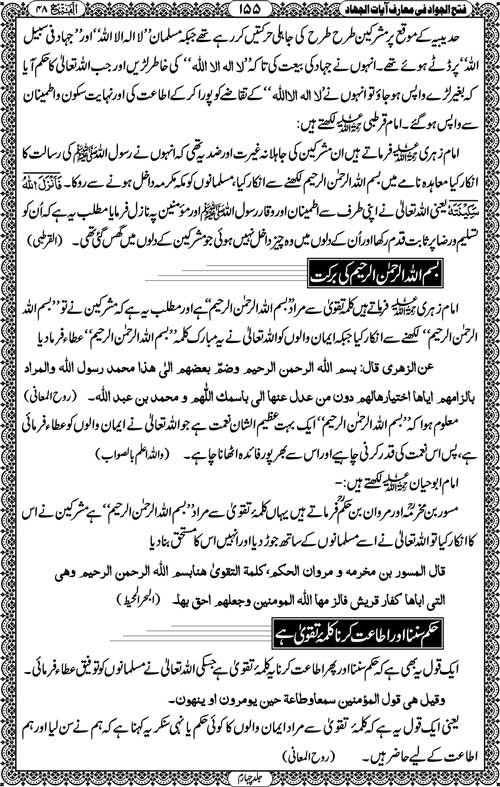 فتح الجواد فی معارف آیات الجہاد ۱۵۵ الفتح ۴۸
حدیبیہ کے موقع پر مشرکین طرح طرح کی جاہلی حرکتیں کر رہے تھے جبکہ مسلمان ’’لا الہ الا اللہ‘‘ اور ’’جہاد فی سبیل
اللہ‘‘ پر ڈٹے ہوئے تھے۔ انہوں نے جہاد کی بیعت کی تاکہ ’’لا الہ الا اللہ‘‘ کی خاطر لڑیں اور جب اللہ تعالیٰ کا حکم آیا
کہ بغیر لڑے واپس ہو جاؤ تو انہوں نے ’’لا الہ الا اللہ‘‘ کے تقاضے کو پورا کر کے اطاعت کی اور نہایت سکون و اطمینان
سے واپس ہو گئے۔ امام قرطبی ؒ لکھتے ہیں:
امام زہری ؒ فرماتے ہیں ان مشرکین کی جاہلانہ غیرت اور ضد یہ تھی کہ انہوں نے رسول اللہ ﷺ کی رسالت کا
انکار کیا معاہدہ نامے میں بسم اللہ الرحمٰن الرحیم لکھنے سے انکار کیا، مسلمانوں کو مکہ مکرمہ داخل ہونے سے روکا۔ فَاَنْزَلَ اللّٰهُ
سَکِیْنَتَهٗ یعنی اللہ تعالیٰ نے اپنی طرف سے اطمینان اور وقار رسول اللہ ﷺ اور مؤمنین پہ نازل فرمایا مطلب یہ ہے کہ اُن کو
تسلیم و رضا پر ثابت قدم رکھا اور اُن کے دلوں میں وہ چیز داخل نہیں ہوئی جو مشرکین کے دلوں میں گھس گئی تھی۔ (القرطبی)
بسم اللہ الرحمٰن الرحیم کی برکت
امام زہری ؒ فرماتے ہیں کلمۂ تقویٰ سے مراد ’’بسم اللہ الرحمٰن الرحیم‘‘ ہے اور مطلب یہ ہے کہ مشرکین نے تو ’’بسم اللہ
الرحمٰن الرحیم‘‘ لکھنے سے انکار کیا جبکہ ایمان والوں کو اللہ تعالیٰ نے یہ مبارک کلمہ ’’بسم اللہ الرحمٰن الرحیم‘‘ عطاء فرما دیا
عن الزهری قال: بسم الله الرحمن الرحیم وضمّ بعضهم الیٰ هذا محمد رسول الله والمراد
بالزامهم ایاها اختیارهالهم دون من عدل عنها الی باسمك اللّٰهم و محمد بن عبد الله۔ (روح المعانی)
معلوم ہوا کہ ’’بسم اللہ الرحمٰن الرحیم‘‘ ایک بہت عظیم الشان نعمت ہے جو اللہ تعالیٰ نے ایمان والوں کو عطاء فرمائی
ہے، پس اس نعمت کی قدر کرنی چاہیے اور اس سے بھرپور فائدہ اٹھانا چاہیے۔ (واللہ اعلم بالصواب)
امام ابو حیان ؒ لکھتے ہیں:۔
مسور بن مخرمہؓ اور مروان بن حکمؒ فرماتے ہیں یہاں کلمۂ تقویٰ سے مراد ’’بسم اللہ الرحمٰن الرحیم‘‘ ہے مشرکین نے اس
کا انکار کیا تو اللہ تعالیٰ نے اسے مسلمانوں کے ساتھ جوڑ دیا اور انہیں اس کا مستحق بنا دیا
قال المسور بن مخرمه و مروان الحکم، کلمة التقویٰ هنابسم الله الرحمن الرحیم وهی
التی اباها کفار قریش فالز مها الله المومنین وجعلهم احق بها۔ (البحر المحیط)
حکم سننا اور اطاعت کرنا کلمۂ تقویٰ ہے
ایک قول یہ بھی ہے کہ حکم سننا اور پھر اطاعت کرنا یہ کلمۂ تقویٰ ہے جسکی اللہ تعالیٰ نے مسلمانوں کو توفیق عطاء فرمائی۔
وقیل هی قول المؤمنین سمعاوطاعة حین یومرون او ینهون۔
یعنی ایک قول یہ ہے کہ کلمۂ تقویٰ سے مراد ایمان والوں کا کوئی حکم یا نہی سنکر یہ کہنا ہے کہ ہم نے سن لیا اور ہم
اطاعت کے لیے حاضر ہیں۔ (روح المعانی)
جلد چہارم